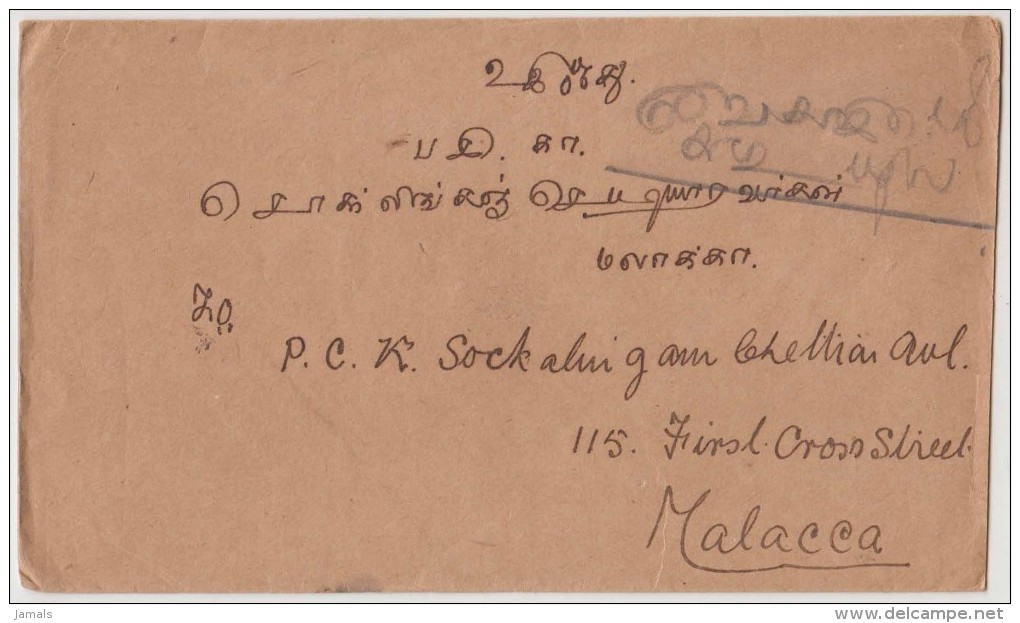 ப. சி. கா.
சொக்கலிங்கஞ் செட்டியாரவர்கள்
மலாக்கா.
To
P. C. K. Sockalingam Chettiar Avl.
115. First Cross Street
Malacca
jamals
www.delcampe.net